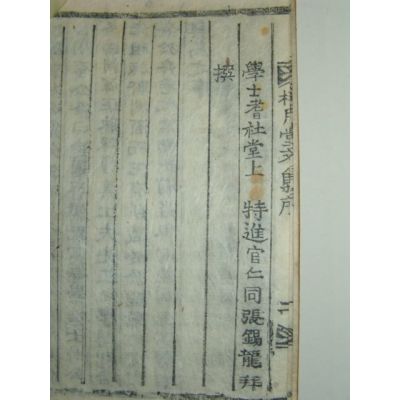 文集序
學士耆社堂上 特進官仁同張錫龍拜
撰